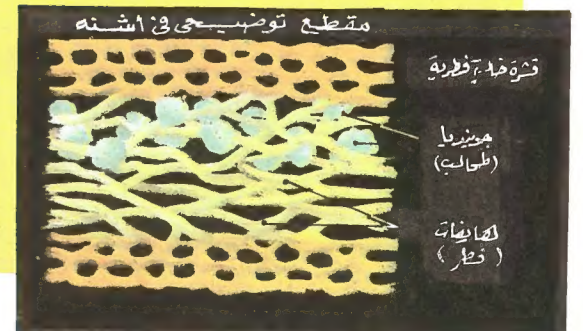 مقطع توضيحى فى أشنه
قشرة خلايا فطرية
جونيديا
(طحالب)
هايفات
(فطر)